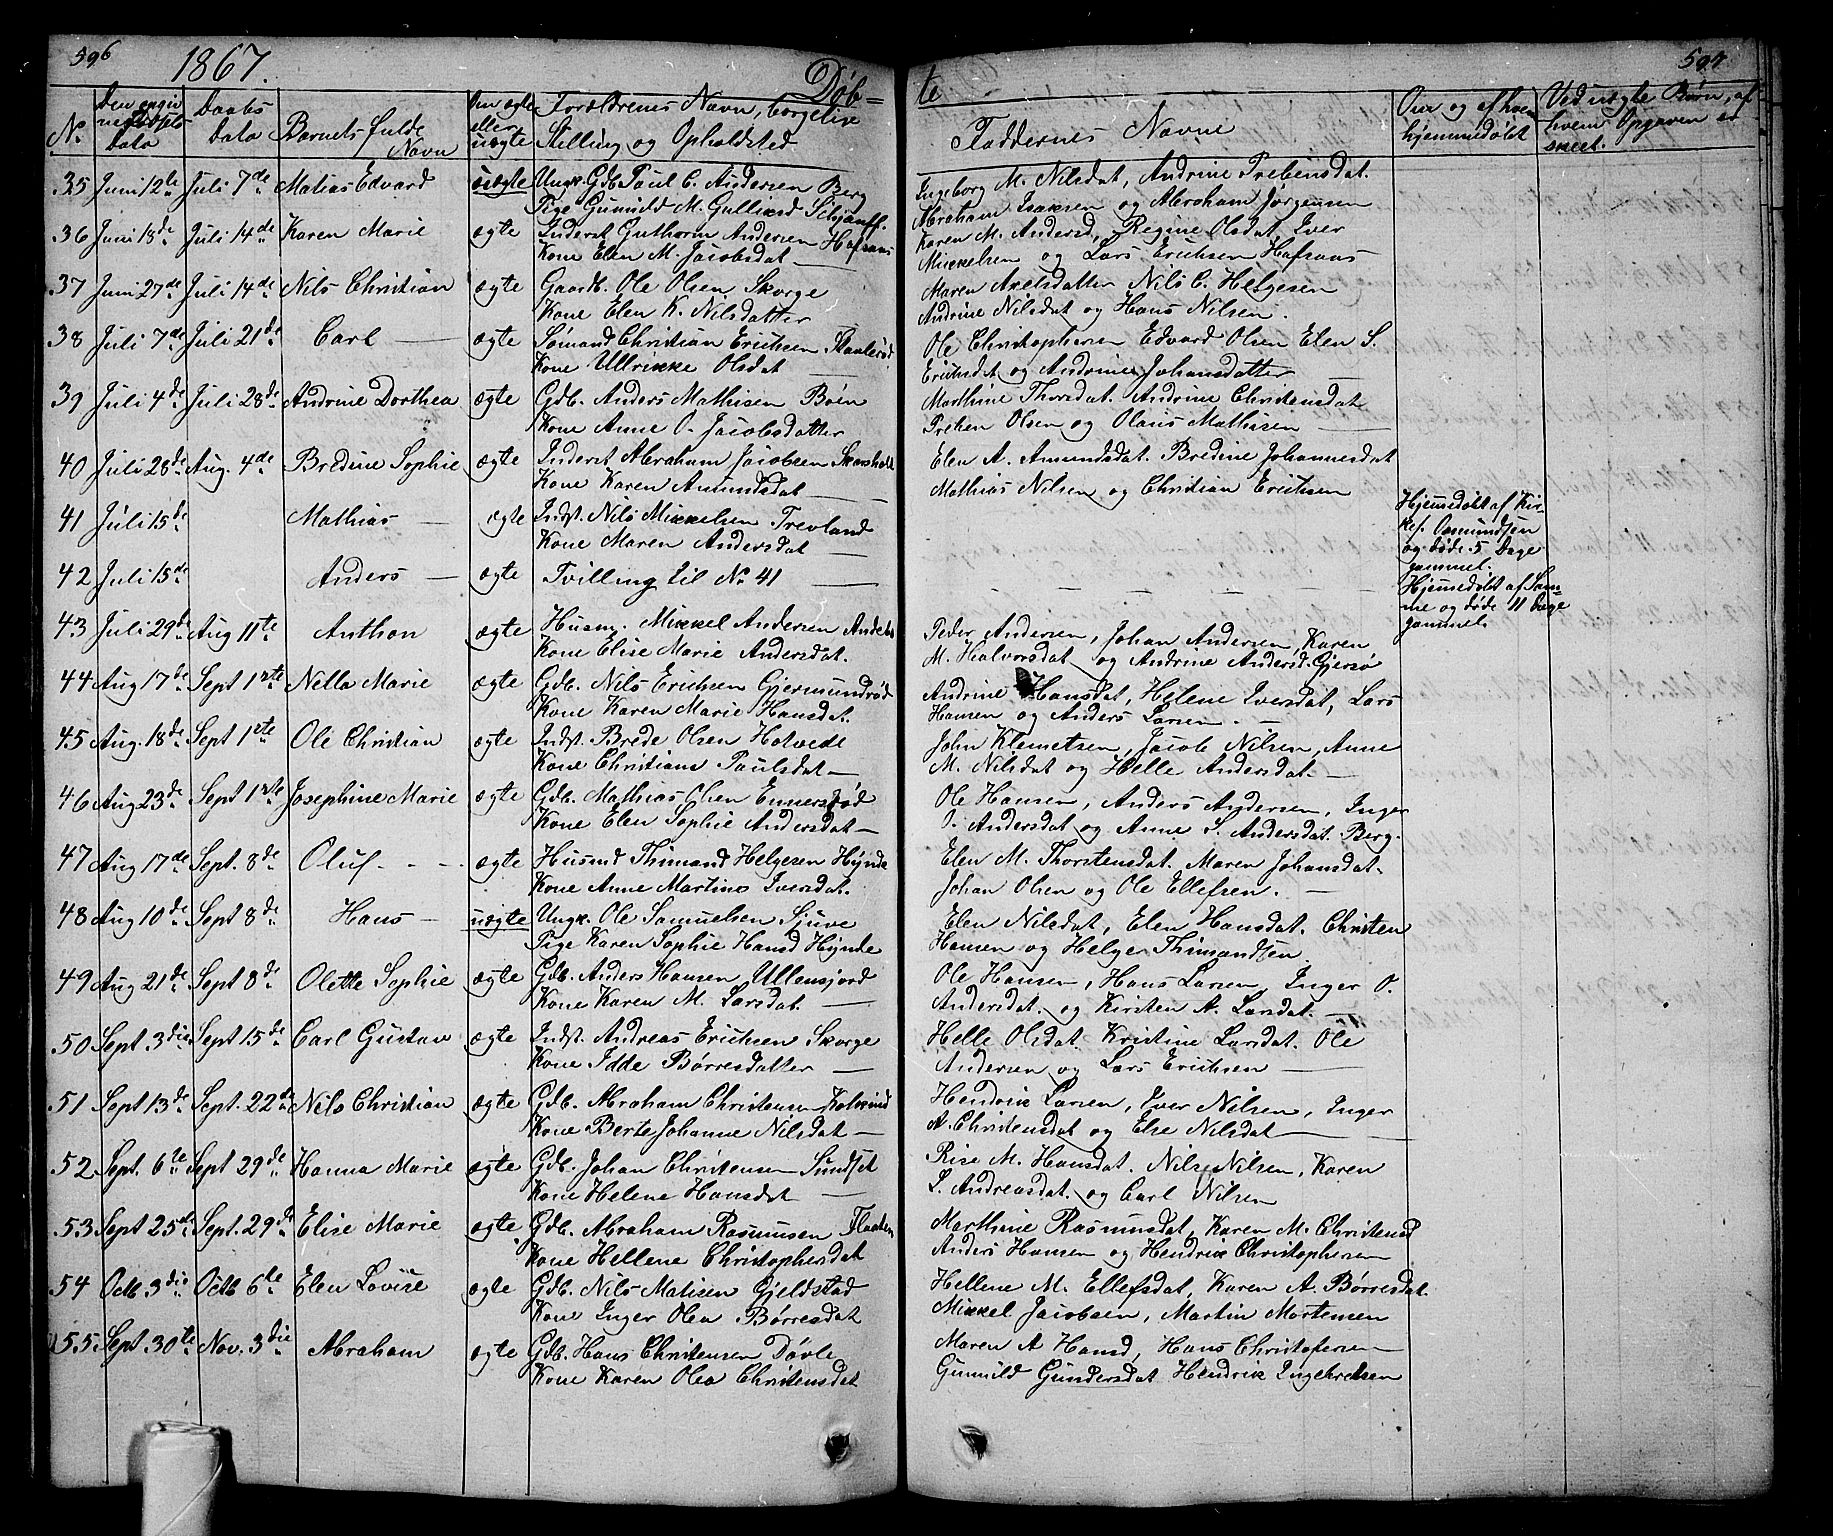 596
1867.
Døb-
te
597
No
Den angiv
ne Fødsels
Dato
Daabs
Dato
Barnets fulde
Navn
Om ægte
eller
uægte
Forældrenes Navn, borgelige
Stilling og Opholdsted
Faddernes Navne
Om og af hvem
hjemmedøbt
Ved uægte Børn, af
hvem Opgaven er
skeet.
35 Juni 12te Juli 7de Matias Edvard uægte Ungk. Gdb. Paul C. Andersen Berg Ingeborg M. Nilsdat, Andrine Prebensdat.
Pige Gunnild M. Gulliksd Abraham Isaksen og Abraham Jørgensen
36 Juni 18de Juli 14de Karen Marie ægte Inderst Guthorm Andersen Hafsaas Karen M. Andersd, Regine Olsdat, Iver
Kone Elen M. Jacobsdat — Mikkelsen og Lars Erichsen Hafsaas
37 Juni 27de Juli 14de Nils Christian ægte Gaardb. Ole Olsen Skorge Maren Axelsdatter Nils C. Helgesen
Kone Elen K. Nilsdatter Andrine Nilsdat og Hans Nilsen.
38 Juli 7de Juli 21de Carl — ægte Sømand Christian Erichsen Ole Christophersen Edvard Olsen Elen S.
Kone Ullrikke Olsdat — Erichsdat og Andrine Johansdatter —
39 Juli 4de Juli 28de Andrine Dorthea ægte Gdb. Anders Mathisen Bøen Marthine Thorsdat. Andrine Christensdat
Kone Anne O. Jacobsdatter Preben Olsen og Olaus Mathisen —
40 Juli 28de Aug. 4de Bredine Sophie ægte Inderst Abraham Jacobsen Skarsholt Elen A. Amundsdat. Bredine Johannesdat
Kone Karen Amundsdat — Mathias Nilsen og Christian Erichsen
41 Juli 15de Mathias — ægte Indst. Nils Mikkelsen Trevland Hjemmedøbt af Kir-
Kone Maren Andersdat — kes. Osmundsen
og døde 5 Dage
gammel.
42 Juli 15de Anders — ægte Tvilling til No 41 — Hjemmedøbt af Sam-
me og døde 11 Dage
gammel.
43 Juli 29de Aug 11te Anthon ægte Husm. Mikkel Andersen Peder Andersen, Johan Andersen, Karen
Kone Elise Marie Andersdat. M. Halvorsdat og Andrine Andersd. Gjersø
44 Aug 17de Sept 1ste Nella Marie ægte Gdb. Nils Erichsen Gjermundrød Andrine Hansdat, Helene Iversdat, Lars
Kone Karen Marie Hansdat. Hansen og Anders Larsen. —
45 Aug. 18de Sept 1ste Ole Christian ægte Indst. Brede Olsen Holvede John Klemetsen, Jacob Nilsen, Anne
Kone Christiane Paulsdat — M. Nilsdat og Helle Andersdat —
46 Aug 23de Sept 1ste Josephine Marie ægte Gdb. Mathias Olsen Ennersrød Ole Hansen, Anders Andersen, Inger
Kone Elen Sophie Andersdat — O. Andersdat og Anne S. Andersdat. Berg.
47 Aug 17de Sept. 8de Oluf - - - ægte Husmd Thimand Helgesen Hynde Elen M. Thorstensdat. Maren Johansdat.
Kone Anne Martine Iversdat. Johan Olsen og Ole Ellefsen. —
48 Aug 10de Sept 8de Hans — uægte Ungk. Ole Samuelsen Sjuve Elen Nilsdat, Elen Hansdat. Christen
Pige Karen Sophie Hansd Hynde Hansen og Helge Thimandsen
49 Aug 21de Sept 8de Olette Sophie ægte Gdb. Anders Hansen Ullensjord Ole Hansen, Hans Larsen, Inger O.
Kone Karen M. Larsdat. — Andersdat. og Kirsten A. Larsdat. —
50 Sept 3die Sept 15de Carl Gustav ægte Indst. Andreas Erichsen Skorge Helle Olsdat. Kristine Larsdat. Ole
Kone Idde Børresdatter — Andersen og Lars Erichsen —
51 Sept 13de Sept. 22de Nils Christian ægte Gdb. Abraham Christensen Hendrik Larsen, Iver Nilsen, Inger
Kone Berte Johanne Nilsdat — A. Christensdat og Else Nilsdat —
52 Sept. 6te Sept 29de Hanna Marie ægte Gdb. Johan Christensen Sundset Rise M. Hansdat. Nils Nilsen, Karen
Kone Helene Hansdat — L. Andreasdat. og Carl Nilsen
53 Sept 25de Sept. 29de Elise Marie ægte Gdb. Abraham Rasmusen Flaaten Marthine Rasmusdat, Karen M. Christensd
Kone Hellene Christophersdat Anders Hansen og Hendrik Christophersen
54 Octb 3die Octb 6te Elen Lovise ægte Gdb. Nils Matisen Gjeldstad Hellene M. Ellefsdat, Karen A. Børresdat.
Kone Inger Olea Børresdat Mikkel Jacobsen, Martin Mortensen
55 Sept 30te Nov. 3die Abraham ægte Gdb. Hans Christensen Døvle Maren A Hansd, Hans Christofersen
Kone Karen Olea Christensdat Gunnild Gundersdat Hendrik Ingebretsen